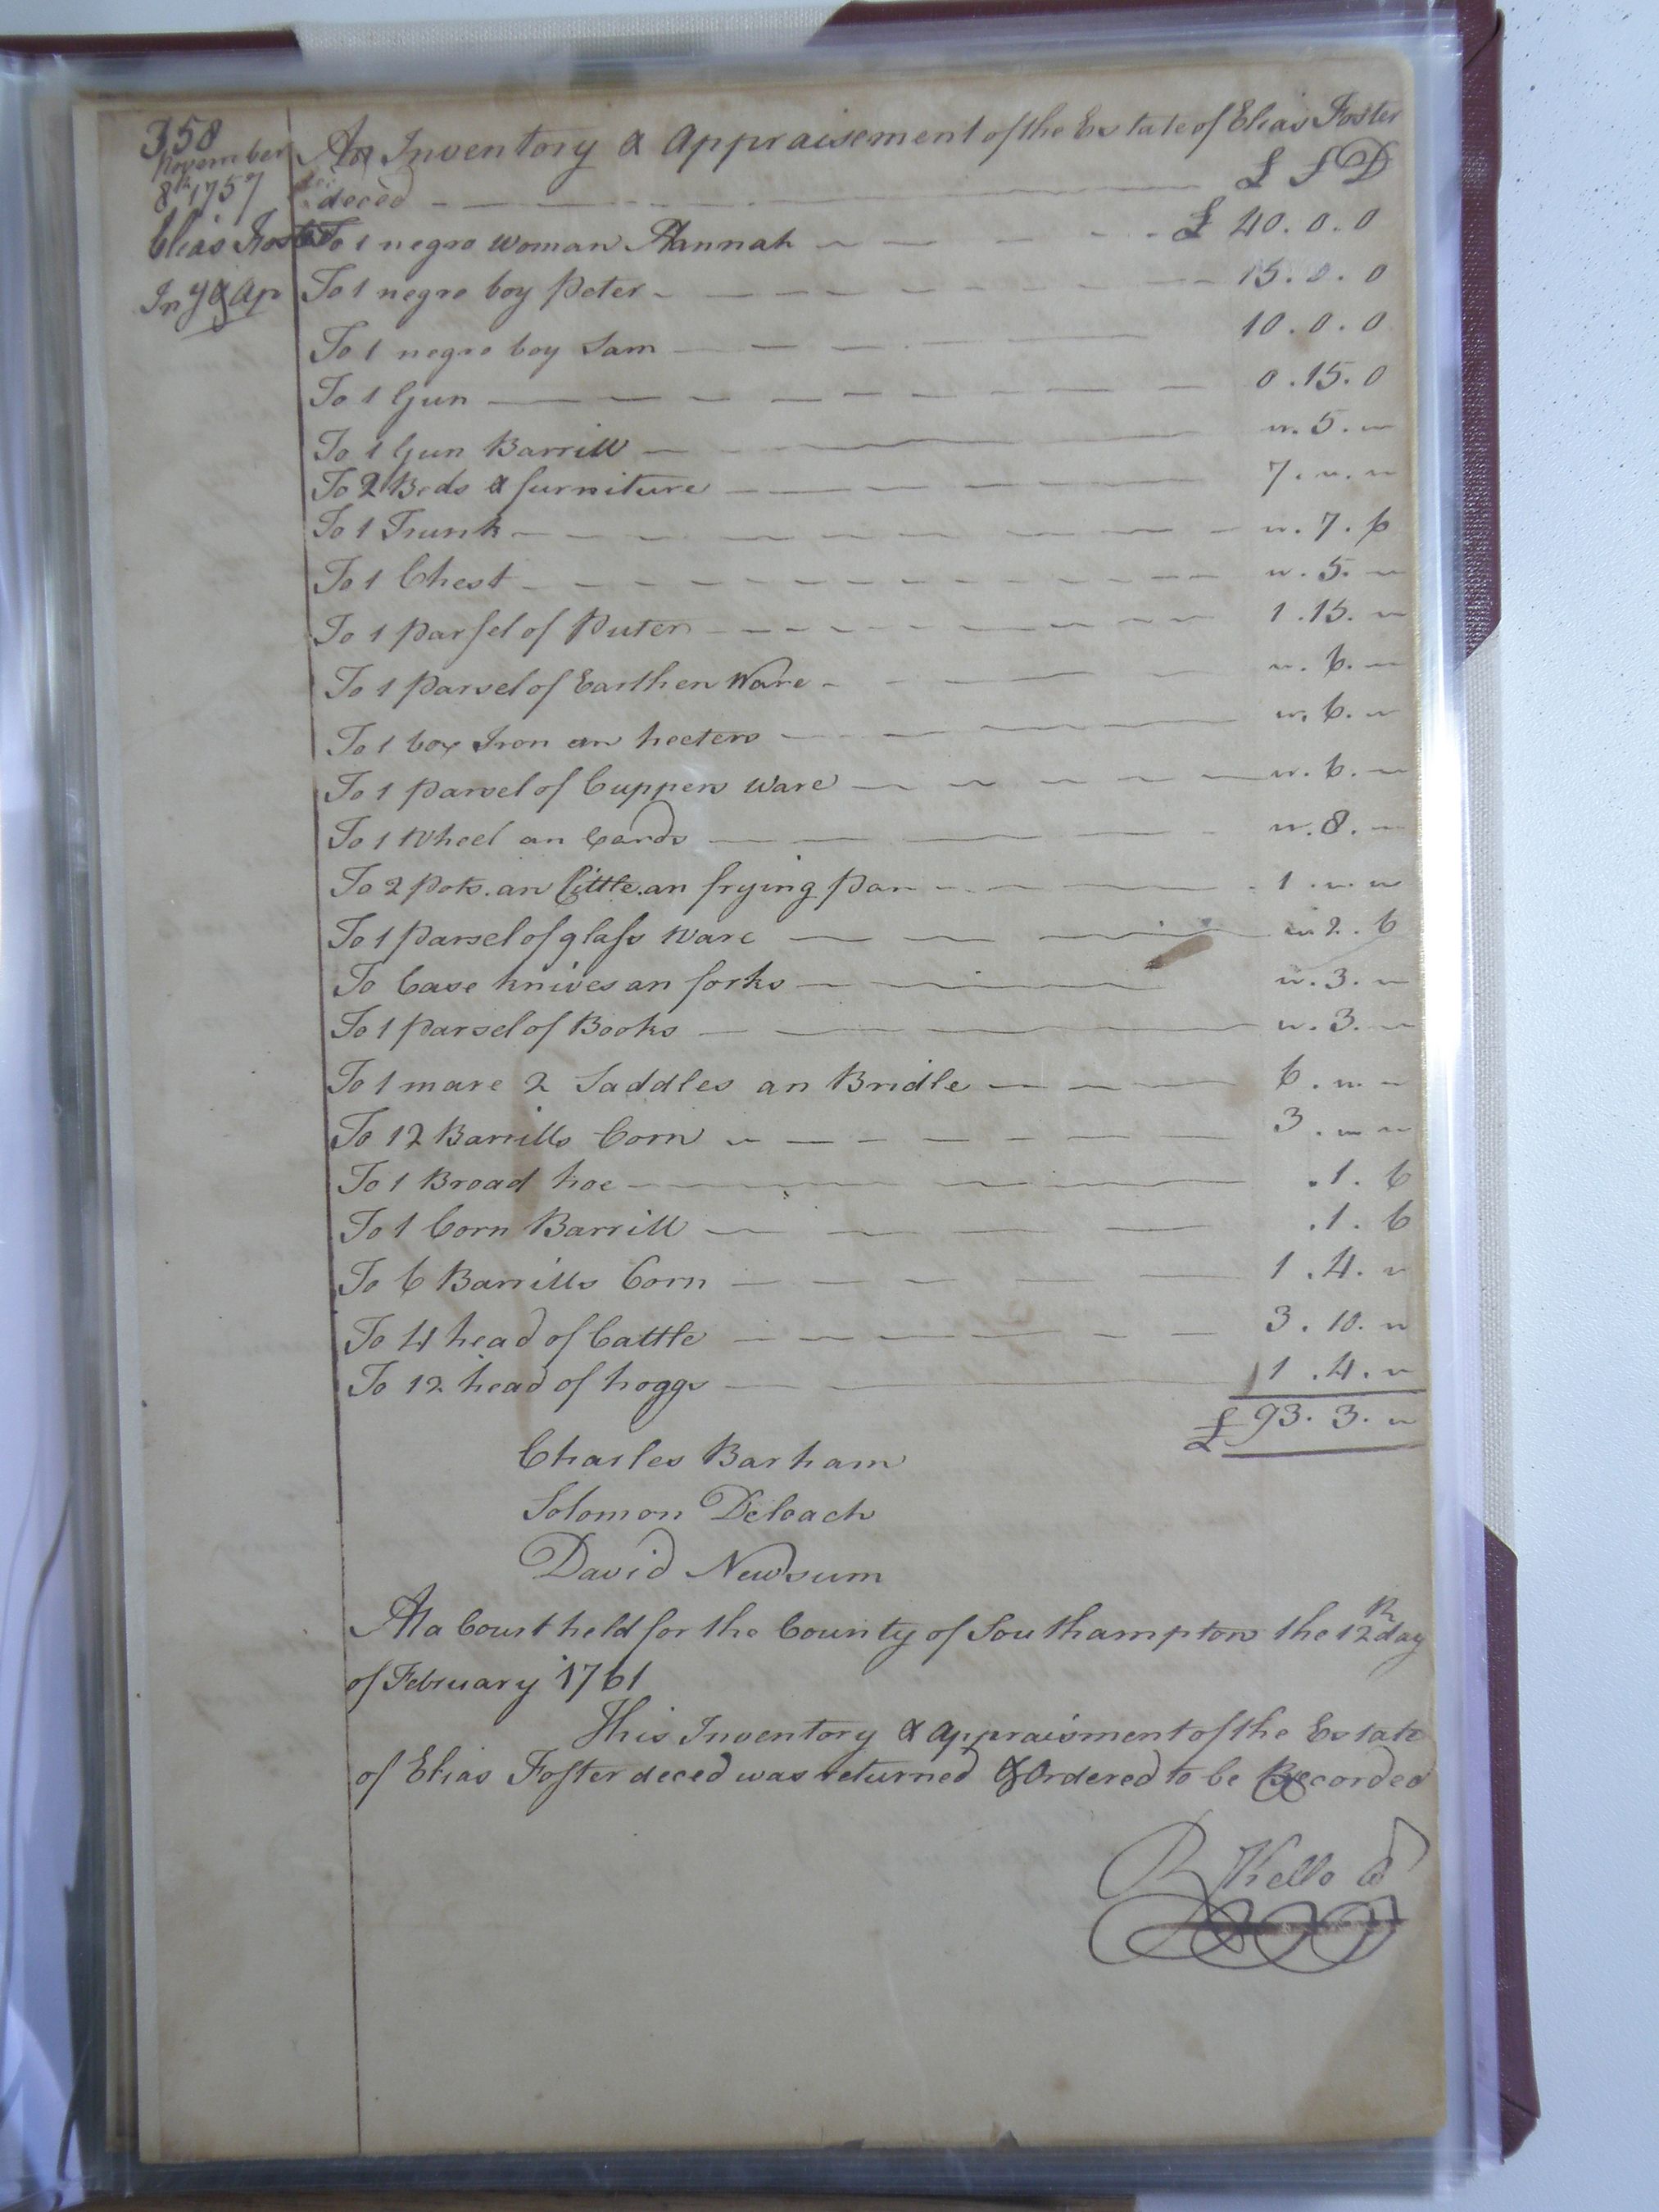 358
November
8th 1757
Elias Foster
Inv & Ap
An Inventory & Appraisement of the Estate of Elias Foster
deced £ S D
To 1 negro woman Hannah £ 40.0.0
To 1 negro boy Peter 15.0.0
To 1 negro boy Sam 10.0.0
To 1 Gun 0.15.0
To 1 Gun Barrill ".5."
To 2 Beds & furniture 7."."
To 1 Trunk ".7.6
To 1 Chest ".5."
To 1 parsel of Puter 1.15."
To 1 parsel of Earthen Ware ".6."
To 1 box Iron an heeters ".6."
To 1 parsel of Cuppers Ware ".6."
To 1 Wheel an Cards ".8."
To 2 pots an Cittle an frying pan 1."."
To 1 parsel of glass Ware ".2.6
To Case knives an forks ".3."
To 1 parsel of Books ".3."
To 1 mare 2 Saddles an Bridle 6."."
To 12 Barrills Corn 3."."
To 1 Broad hoe .1.6
To 1 Corn Barrill .1.6
To 6 Barrills Corn 1.4."
To 4 head of Cattle 3.10."
To 12 head of hoggs 1.4."
£ 93.3."
Charles Barham
Solomon Deloach
David Newsum
At a Court held for the County of Southampton the 12th day
of February 1761
This Inventory & Appraisment of the Estate
of Elias Foster deced was returned & Ordered to be Recorded
R Kello